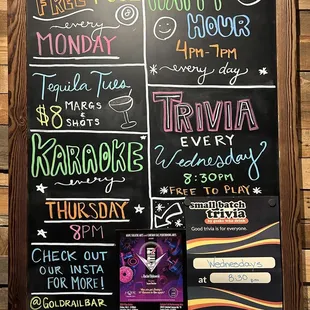 FREE POOL
every
MONDAY
Tequila Tues.
$8 MARGS
&
SHOTS
KARAOKE
every
THURSDAY
8PM
CHECK OUT
OUR INSTA
FOR MORE!
@GOLDRAILBAR
HAPPY
HOUR
4PM-7PM
every day
TRIVIA
EVERY
Wednesday
8:30PM
FREE TO PLAY
small batch
trivia
Good trivia is for everyone.
Wednesdays
at 8:30pm